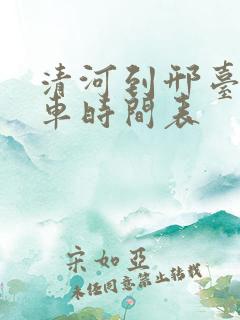 清河到邢臺
車時間表
宋如亞
未经同意禁止转载